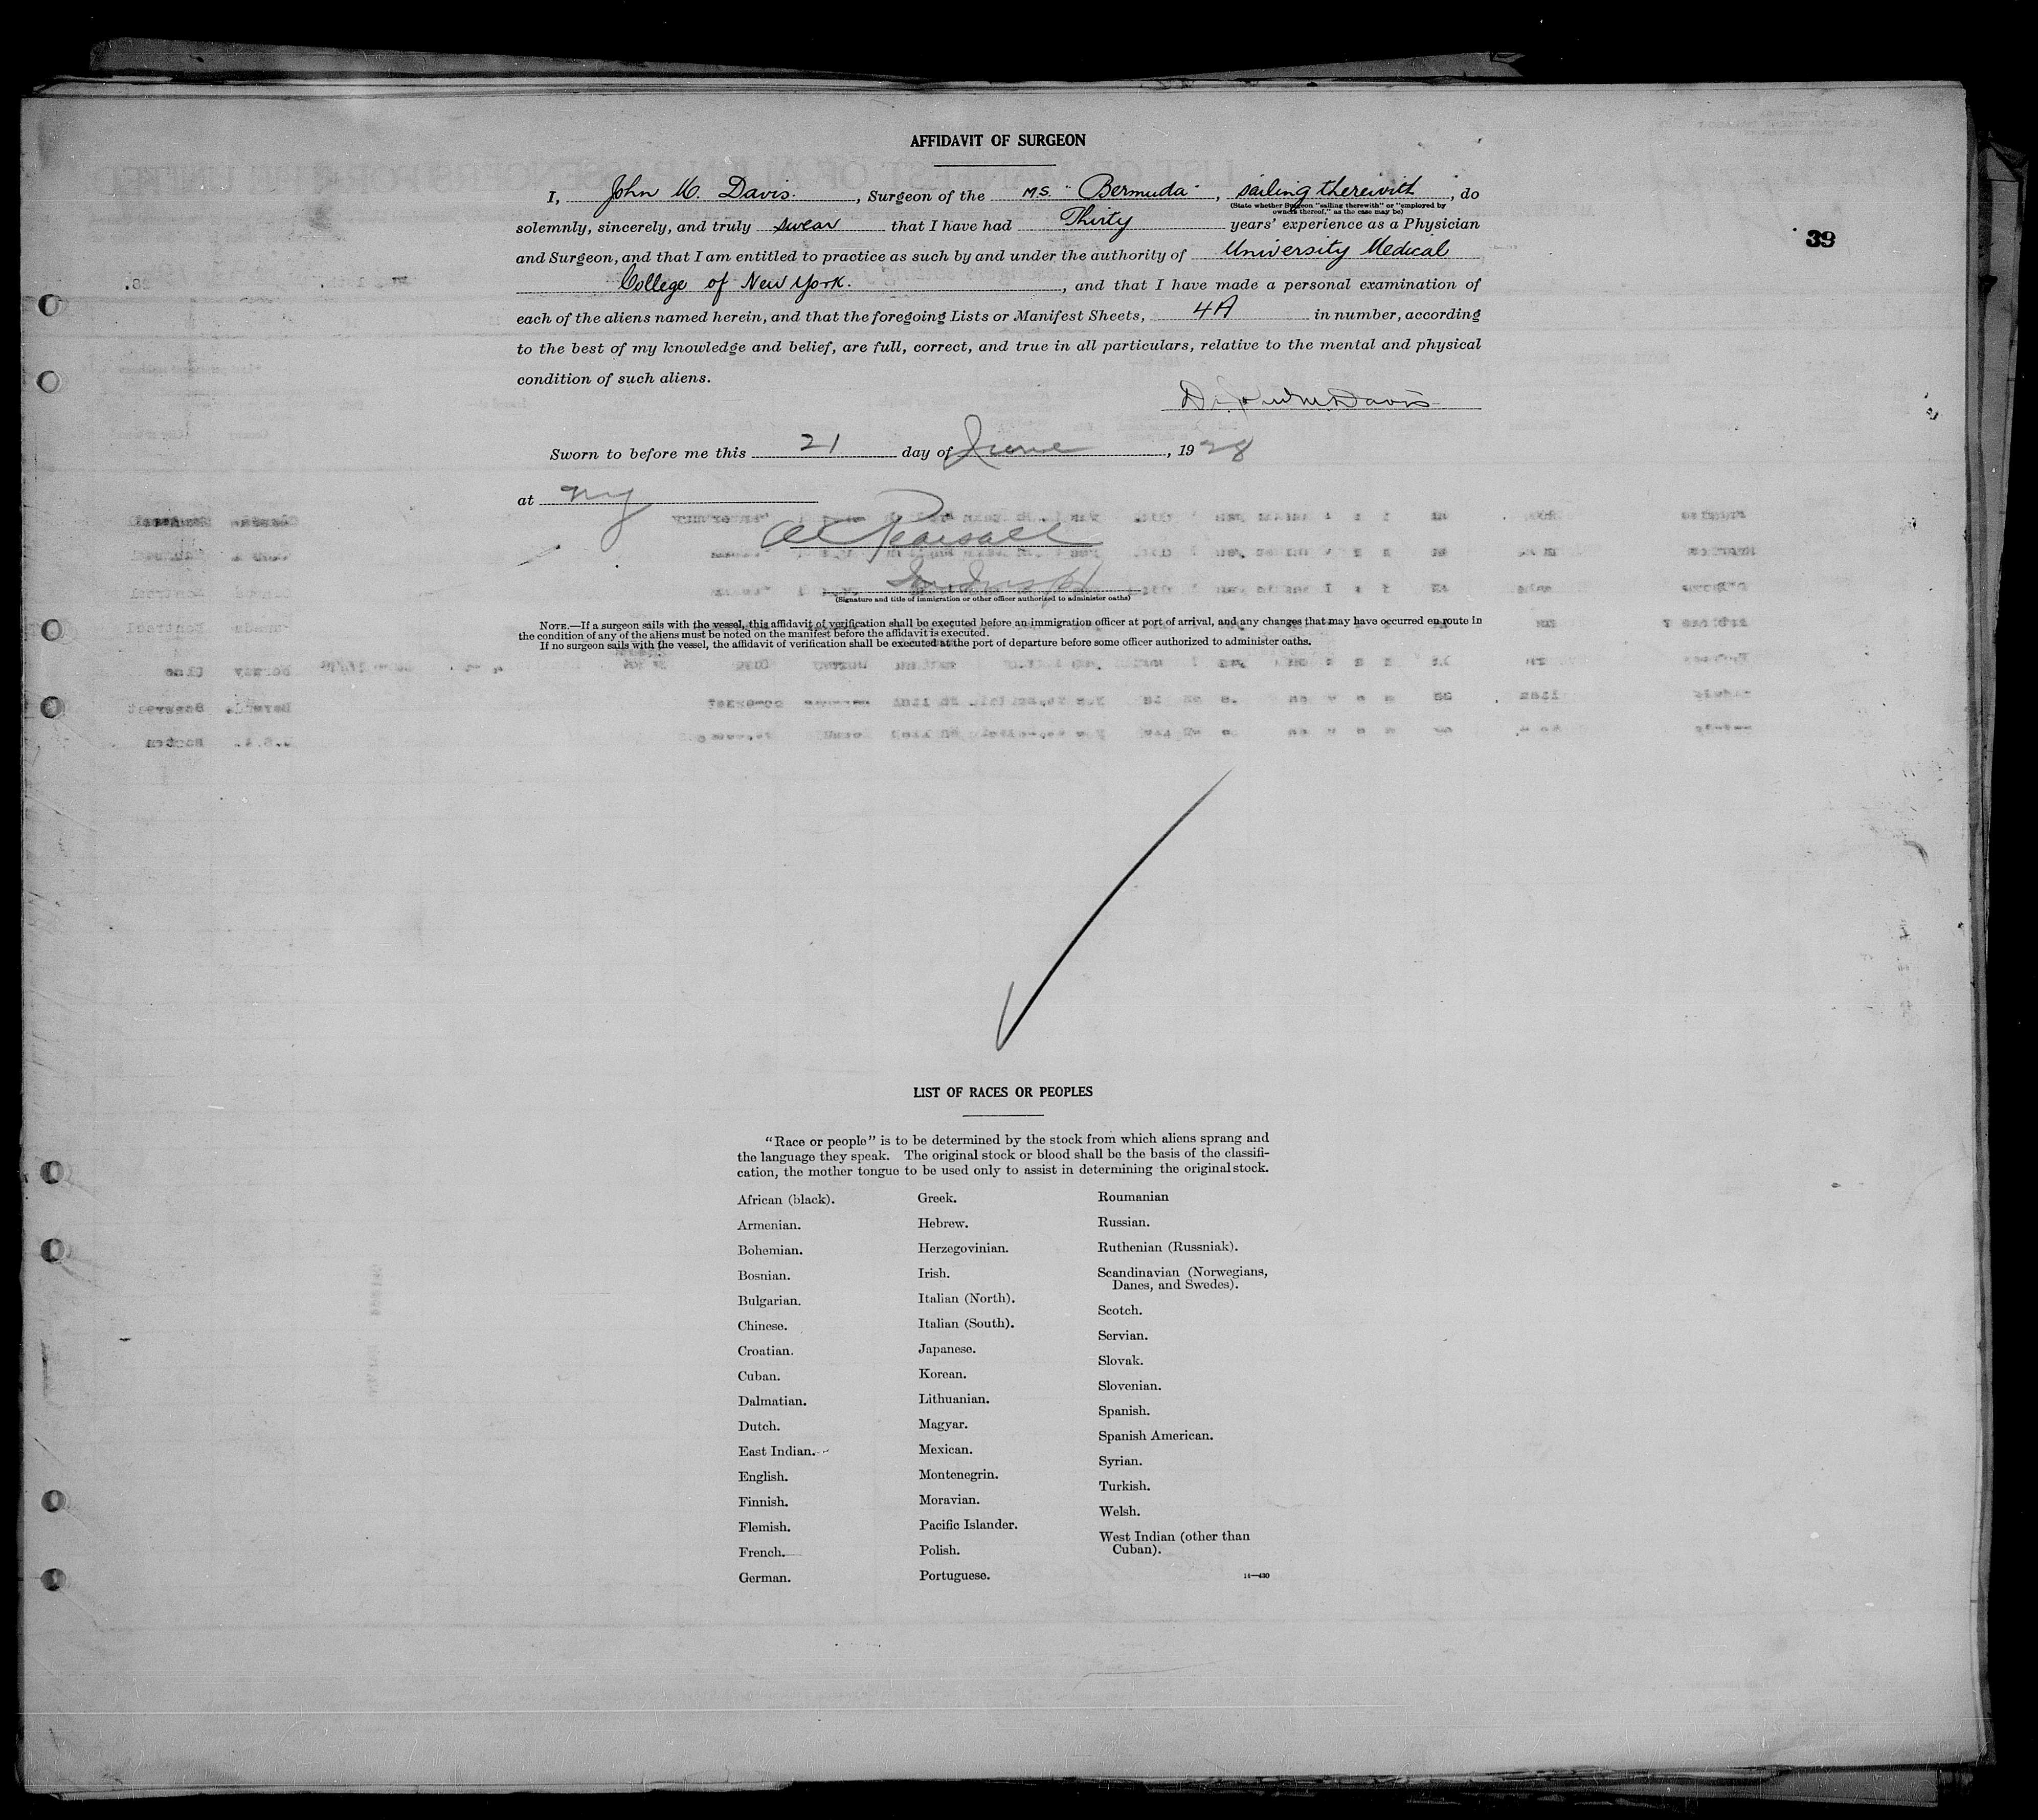 AFFIDAVIT OF SURGEON
I, John M. Davis. , Surgeon of the M.S. "Bermuda" , sailing therewith , do
(State whether Surgeon "sailing therewith" or "employed by
owners thereof," as the case may be)
solemnly, sincerely, and truly swear that I have had Thirty years' experience as a Physician
39
and Surgeon, and that I am entitled to practice as such by and under the authority of University Medical
College of New York. , and that I have made a personal examination of
each of the aliens named herein, and that the foregoing Lists or Manifest Sheets, 4A in number, according
to the best of my knowledge and belief, are full, correct, and true in all particulars, relative to the mental and physical
condition of such aliens.
Dr. John M. Davis
Sworn to before me this 21 day of June , 1928
at NY
Pearsall
(Signature and title of immigration or other officer authorized to administer oaths)
NOTE.—If a surgeon sails with the vessel, this affidavit of verification shall be executed before an immigration officer at port of arrival, and any changes that may have occurred en route in
the condition of any of the aliens must be noted on the manifest before the affidavit is executed.
If no surgeon sails with the vessel, the affidavit of verification shall be executed at the port of departure before some officer authorized to administer oaths.
LIST OF RACES OR PEOPLES
"Race or people" is to be determined by the stock from which aliens sprang and
the language they speak. The original stock or blood shall be the basis of the classifi-
cation, the mother tongue to be used only to assist in determining the original stock.
African (black).
Armenian.
Bohemian.
Bosnian.
Bulgarian.
Chinese.
Croatian.
Cuban.
Dalmatian.
Dutch.
East Indian.
English.
Finnish.
Flemish.
French.
German.
Greek.
Hebrew.
Herzegovinian.
Irish.
Italian (North).
Italian (South).
Japanese.
Korean.
Lithuanian.
Magyar.
Mexican.
Montenegrin.
Moravian.
Pacific Islander.
Polish.
Portuguese.
Roumanian
Russian.
Ruthenian (Russniak).
Scandinavian (Norwegians,
Danes, and Swedes).
Scotch.
Servian.
Slovak.
Slovenian.
Spanish.
Spanish American.
Syrian.
Turkish.
Welsh.
West Indian (other than
Cuban).
14—430